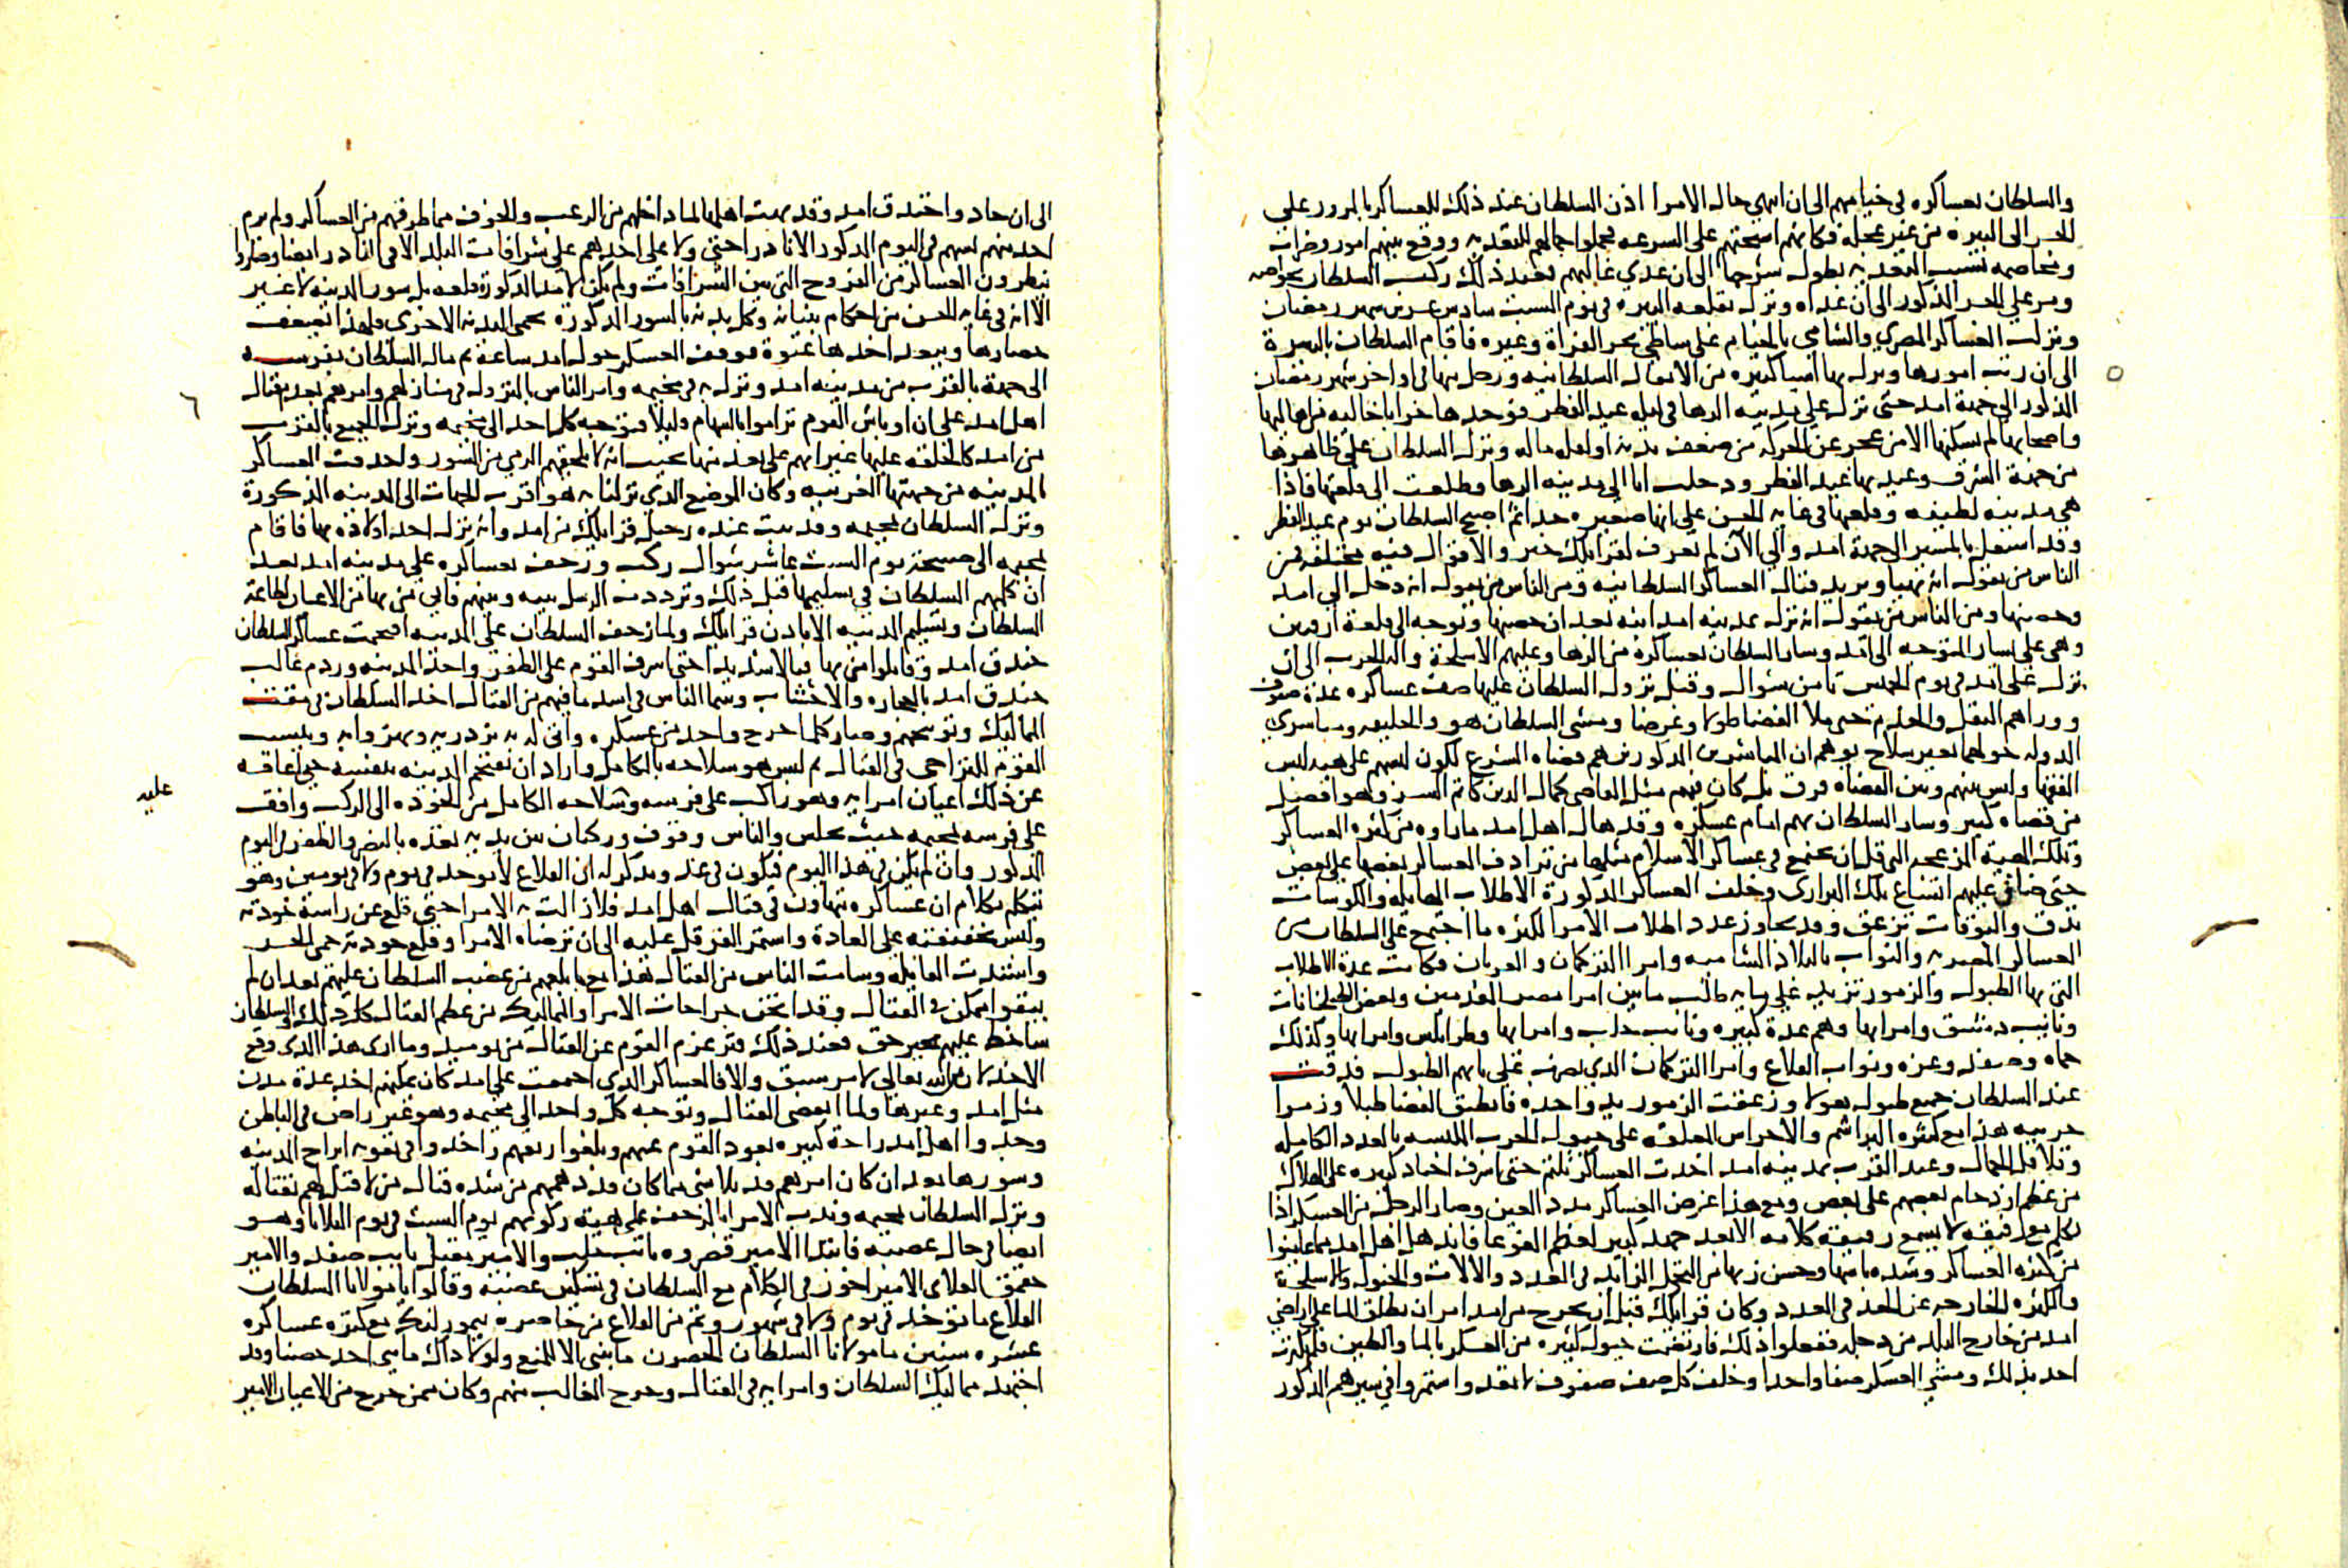 والسلطان بعساكره في خيامهم الى ان انتهى حال الامرا اذن السلطان عند ذلك للعساكر بالمرور على
الجسر الى البيرة من غير عجلة فكانهم استحثهم على السرعه فحملوا جمالهم للتعديه ووقع بينهم امور وضراب
ومخاصمه بسبب التعديه يطول شرحها الى ان عدي غالبهم فعند ذلك ركب السلطان بخواصه
ومر على الجسر المذكور الى ان عداه ونزل بقلعه البيره في يوم السبت سادس عشرين شهر رمضان
ونزلت العساكر المصري والشامي بالخيام على ساطي بحر الفراة وغيره فاقام السلطان بالبيرة
الى ان رتب امورها وترك بها اشيا كثيره من الاثقال السلطانيه ورحل منها في اواخر شهر رمضان
المذكور الى جهة امد حتى نزل على مدينه الرها في ليله عيد الفطر فوجدها خرابا خاليه من اهاليها
واصحابها لم يسكنها الا من عجز عن الحركه من ضعف بدنه او لقله ماله ونزل السلطان على ظاهرها
من جهة الشرق وعيد بها عيد الفطر ودخلت انا الى مدينه الرها وطلعت الى قلعتها فاذا
هي مدينه لطيفه وقلعتها في غايه الحسن على انها صغيره جدا ثم اصبح السلطان يوم عيد الفطر
وقد اشتغل بالمسير الى جهة امد والى الآن لم يعرف لقرايلك خبر والاقوال فيه مختلفه فمن
الناس من يقول انه تهيا ويريد قتال العساكر السلطانيه ومن الناس من يقول انه دخل الى امد
وحصنها ومن الناس من يقول انه نزل بمدينه امد ابنه بعد ان حصنها وتوجه الى قلعة ارقنين
وهى على يسار المتوجه الى امد وسار السلطان بعساكره من الرها وعليهم الاسلحة والة الحرب الى ان
نزل على امد في يوم الخميس ثامن شوال وقبل نزول السلطان عليها صف عساكره عدة صفوف
ووراهم الثقل والخدم حتى ملا الفضا طولا وعرضا ومشى السلطان هو والخليفه ومباشري
الدوله حولهما بغير سلاح يوهم ان المباشرين المذكورين هم قضاه الشرع لكون لبسهم على هيه لبس
الفقها وليس بينهم وبين القضاه فرق بل كان فيهم مثل القاضي كمال الدين كاتم السر وهو افضل
من قضاه كثير وسار السلطان بهم امام عسكره وقد هال اهل امد ما راوه من كثره العساكر
وتلك الهيئة المزعجه التي قل ان يجتمع في عساكر الاسلام مثلها من ترادف العساكر بعضها على بعض
حتى ضاق عليهم اتساع تلك البراري وخلف العساكر المذكورة الاطلاب الهايله والكوسات
تدق والبوقات تزعق وقد تجاوز عدد اطلاب الامرا لكثره ما اجتمع على السلطان من
العساكر المصريه والنواب بالبلاد الشاميه وامرا التركمان والعربان فكانت عدة الاطلاب
التي بها الطبول والزمور تزيد على مايه طلب ما بين امرا مصر المقدمين وبعض الطبلخانات
ونايب دمشق وامرايها وهم عدة كبيره ونايب حلب وامرايها وطرابلس وامرايها وكذلك
حماه وصفد وغزه ونواب القلاع وامرا التركمان الذي تضرب على بابهم الطبول فدقت
عند السلطان جميع طبوله هولا وزعقت الزمور يد واحده فانطبق الفضا طبلا وزمرا
حربيه هذا مع كثره البراشم والاجراس المعلقه على خيول الحرب الملبسه بالعدد الكامله
وقلاقل الجمال وعند القرب بمدينه امد اخذت العساكر تلتم حتى اشرف اجناد كثيره على الهلاك
من عظم ازدحام بعضهم على بعض ومع هذا عرض العساكر مدد العين وصار الرجل من العسكر اذا
تكلم مع رفيقه لا يسمع رفيقه كلامه الا بعد جهد كبير لعظم الغوغا فاندهل اهل امد مما عاينوا
من كثره العساكر وشده باسها وحسن زيها من التجمل الزايد في العدد والالات والخيول والاسلحة
والكثره الخارجه عن الحد في العدد وكان قرايلك قبل ان يخرج من امد امر ان يطلق الما على اراضي
امد من خارج البلد من دجله ففعلوا ذلك فارتطمت خيول كثيره من العسكر بالما والطين فلم يكترث
احد بذلك ومشي العسكر صفا واحدا وخلف كل صف صفوف لا تعد واستمروا في سيرهم المذكور
الى ان حاد واخندق امد وقد بهت اهلها لما داخلهم من الرعب والخوف مما طرقهم من العساكر ولم يرم
احد منهم بسهم في اليوم المذكور الا نادرا حتى ولا على احدهم على شرافات البلد الا في النادر ايضا وصاروا
ينظرون العساكر من الفروج التي بين الشرافات ولم يكن لامد المذكورة قلعه بل سور المدينه لا غير
الا انه في غايه الحسن من احكام بنيانه وكل بدنه بالسور المذكوره تحمي البدنه الاخرى فلهذا تصعب
حصارها ويبعد اخذها عنوة فوقف العسكر حول امد ساعة ثم مال السلطان بفرسه
الى جهة بالقرب من مدينه امد ونزل به في مخيمه وامر الناس بالنزول في منازلهم وامرهم بعدم قتال
اهل امد على ان اوباش القوم تراموا بالسهام قليلا فتوجه كل احد الى مخيمه ونزل الجميع بالقرب
من امد كالحلقه عليها غير انهم على بعد منها بحيث انه لا يلحقهم الرمي من السور واحدقت العساكر
بالمدينه من جهتها الغربيه وكان الموضع الذي نزلنا به هو اقرب الجهات الى المدينه المذكورة
ونزل السلطان بمخيمه وقد ثبت عنده رحيل قرايلك من امد وانه نزل احد اولاده بها فاقام
بمخيمه الى صبيحة يوم السبت عاشر شوال ركب وزحف بعساكره على مدينه امد بعد
ان كلمهم السلطان في تسليمها قبل ذلك وترددت الرسل بينه وبينهم فابي من بها من الاعيان لطاعة
السلطان وتسليم المدينه الا باذن قرايلك ولما زحف السلطان على المدينه اقتحمت عساكر السلطان
خندق امد وقاتلوا من بها قتالا شديدا حتى اشرف القوم على الظفر واخذ المدينه وردم غالب
خندق امد بالحجاره والاخشاب وبينما الناس في اشد ما فيهم من القتال اخذ السلطان في مقت
المماليك وتوبيخهم وصار كلما جرح واحد من عسكره واتى له به يزدريه ويهزوا به وينسب
القوم للتراخي في القتال ثم لبس هو سلاحه بالكامل واراد ان يقتحم المدينه بنفسه حتى اعاقه
عن ذلك اعيان امرايه وهو راكب على فرسه وسلاحه الكامل من الخوذه الى الركب واقف
عليه
على فرسه بمخيمه حيث يجلس والناس وقوف وركبان بين يديه تعده بالنصر والظفر في اليوم
المذكور وان لم يكن في هذا اليوم فيكون في غد ويذكر له ان القلاع لا توخذ في يوم ولا في يومين وهو
يتكلم بكلام ان عساكره يتهاون في قتال اهل امد فلا زالت به الامرا حتى قلع عن راسه خودته
ولبس تخفيفته على العادة واستمر القرقل عليه الى ان ترضاه الامرا وقلع خودته حمى الحر
واشتدت القايله وسامت الناس من القتال هذا مع ما بلغهم من غضب السلطان عليهم بعد ان لم
يبقوا ممكن في القتال وقد اثخنت جراحات الامرا والمماليك من عظم القتال كل ذلك والسلطان
ساخط عليهم بغير حق فعند ذلك فتر عزم القوم عن القتال من يوميذ وما ارى هذا الذي وقع
الا خذلان من الله تعالى لامر سبق والا فالعساكر الذي اجتمعت على امد كان يمكنهم اخذ عدة مدن
مثل امد وغيرها ولما انقضى القتال وتوجه كل واحد الى مخيمه وهو غير راض في الباطن
وجد وا اهل امد راحة كبيره بعود القوم عنهم وبلغوا ريقهم واخذوا في تقويه ابراج المدينه
وسورها بعد ان كان امرهم قد تلاشى مما كان قد دهمهم من شده قتال من لا قبل لهم بقتاله
ونزل السلطان بمخيمه وندب الامرا بالزحف على هيئة ركوبهم يوم السبت في يوم الثلاثا وهو
ايضا في حال غضبه فابتدا الامير قصروه نايب حلب والامير مقبل نايب صفد والامير
جقمق العلاى الامير اخور في الكلام مع السلطان في تسكين غضبه وقالوا يا مولانا السلطان
القلاع ما توخذ في يوم ولا في شهور وثم من القلاع من حاصره تيمور لنك مع كثره عساكره
عشره سنين ما مولانا السلطان الحصون ما بنى الا للمنع ولولا ذاك ما بنى احد حصنا وقد
اجتهد مماليك السلطان وامرايه في القتال وجرح الغالب منهم وكان ممن جرح من الاعيان الامير